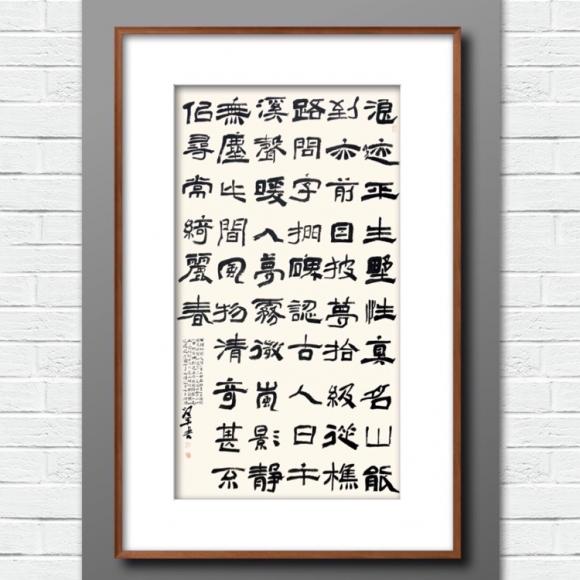 浪迹平生野性真名山能
到亦前因披拾級從樵
路問字捫碑認古人日午
溪聲暖入夢霧微嵐影靜
無塵此間風物清奇甚不
佀尋常綺麗春